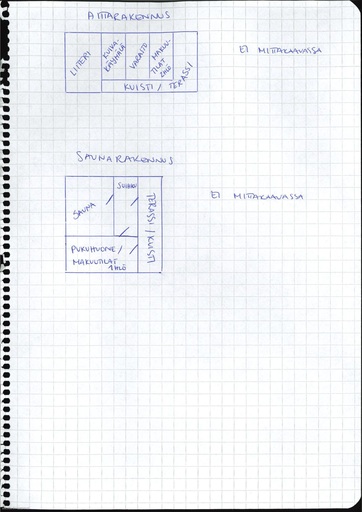 AITTARAKENNUS
LIITERI
KUIVA-
KÄYMÄLÄ
VARASTO
MAKUU-
TILAT
2HLÖ
KUISTI / TERASSI
EI MITTAKAAVASSA
SAUNARAKENNUS
SAUNA
SUIHKU
TERASSI / KUISTI
PUKUHUONE /
MAKUUTILAT
1HLÖ
EI MITTAKAAVASSA